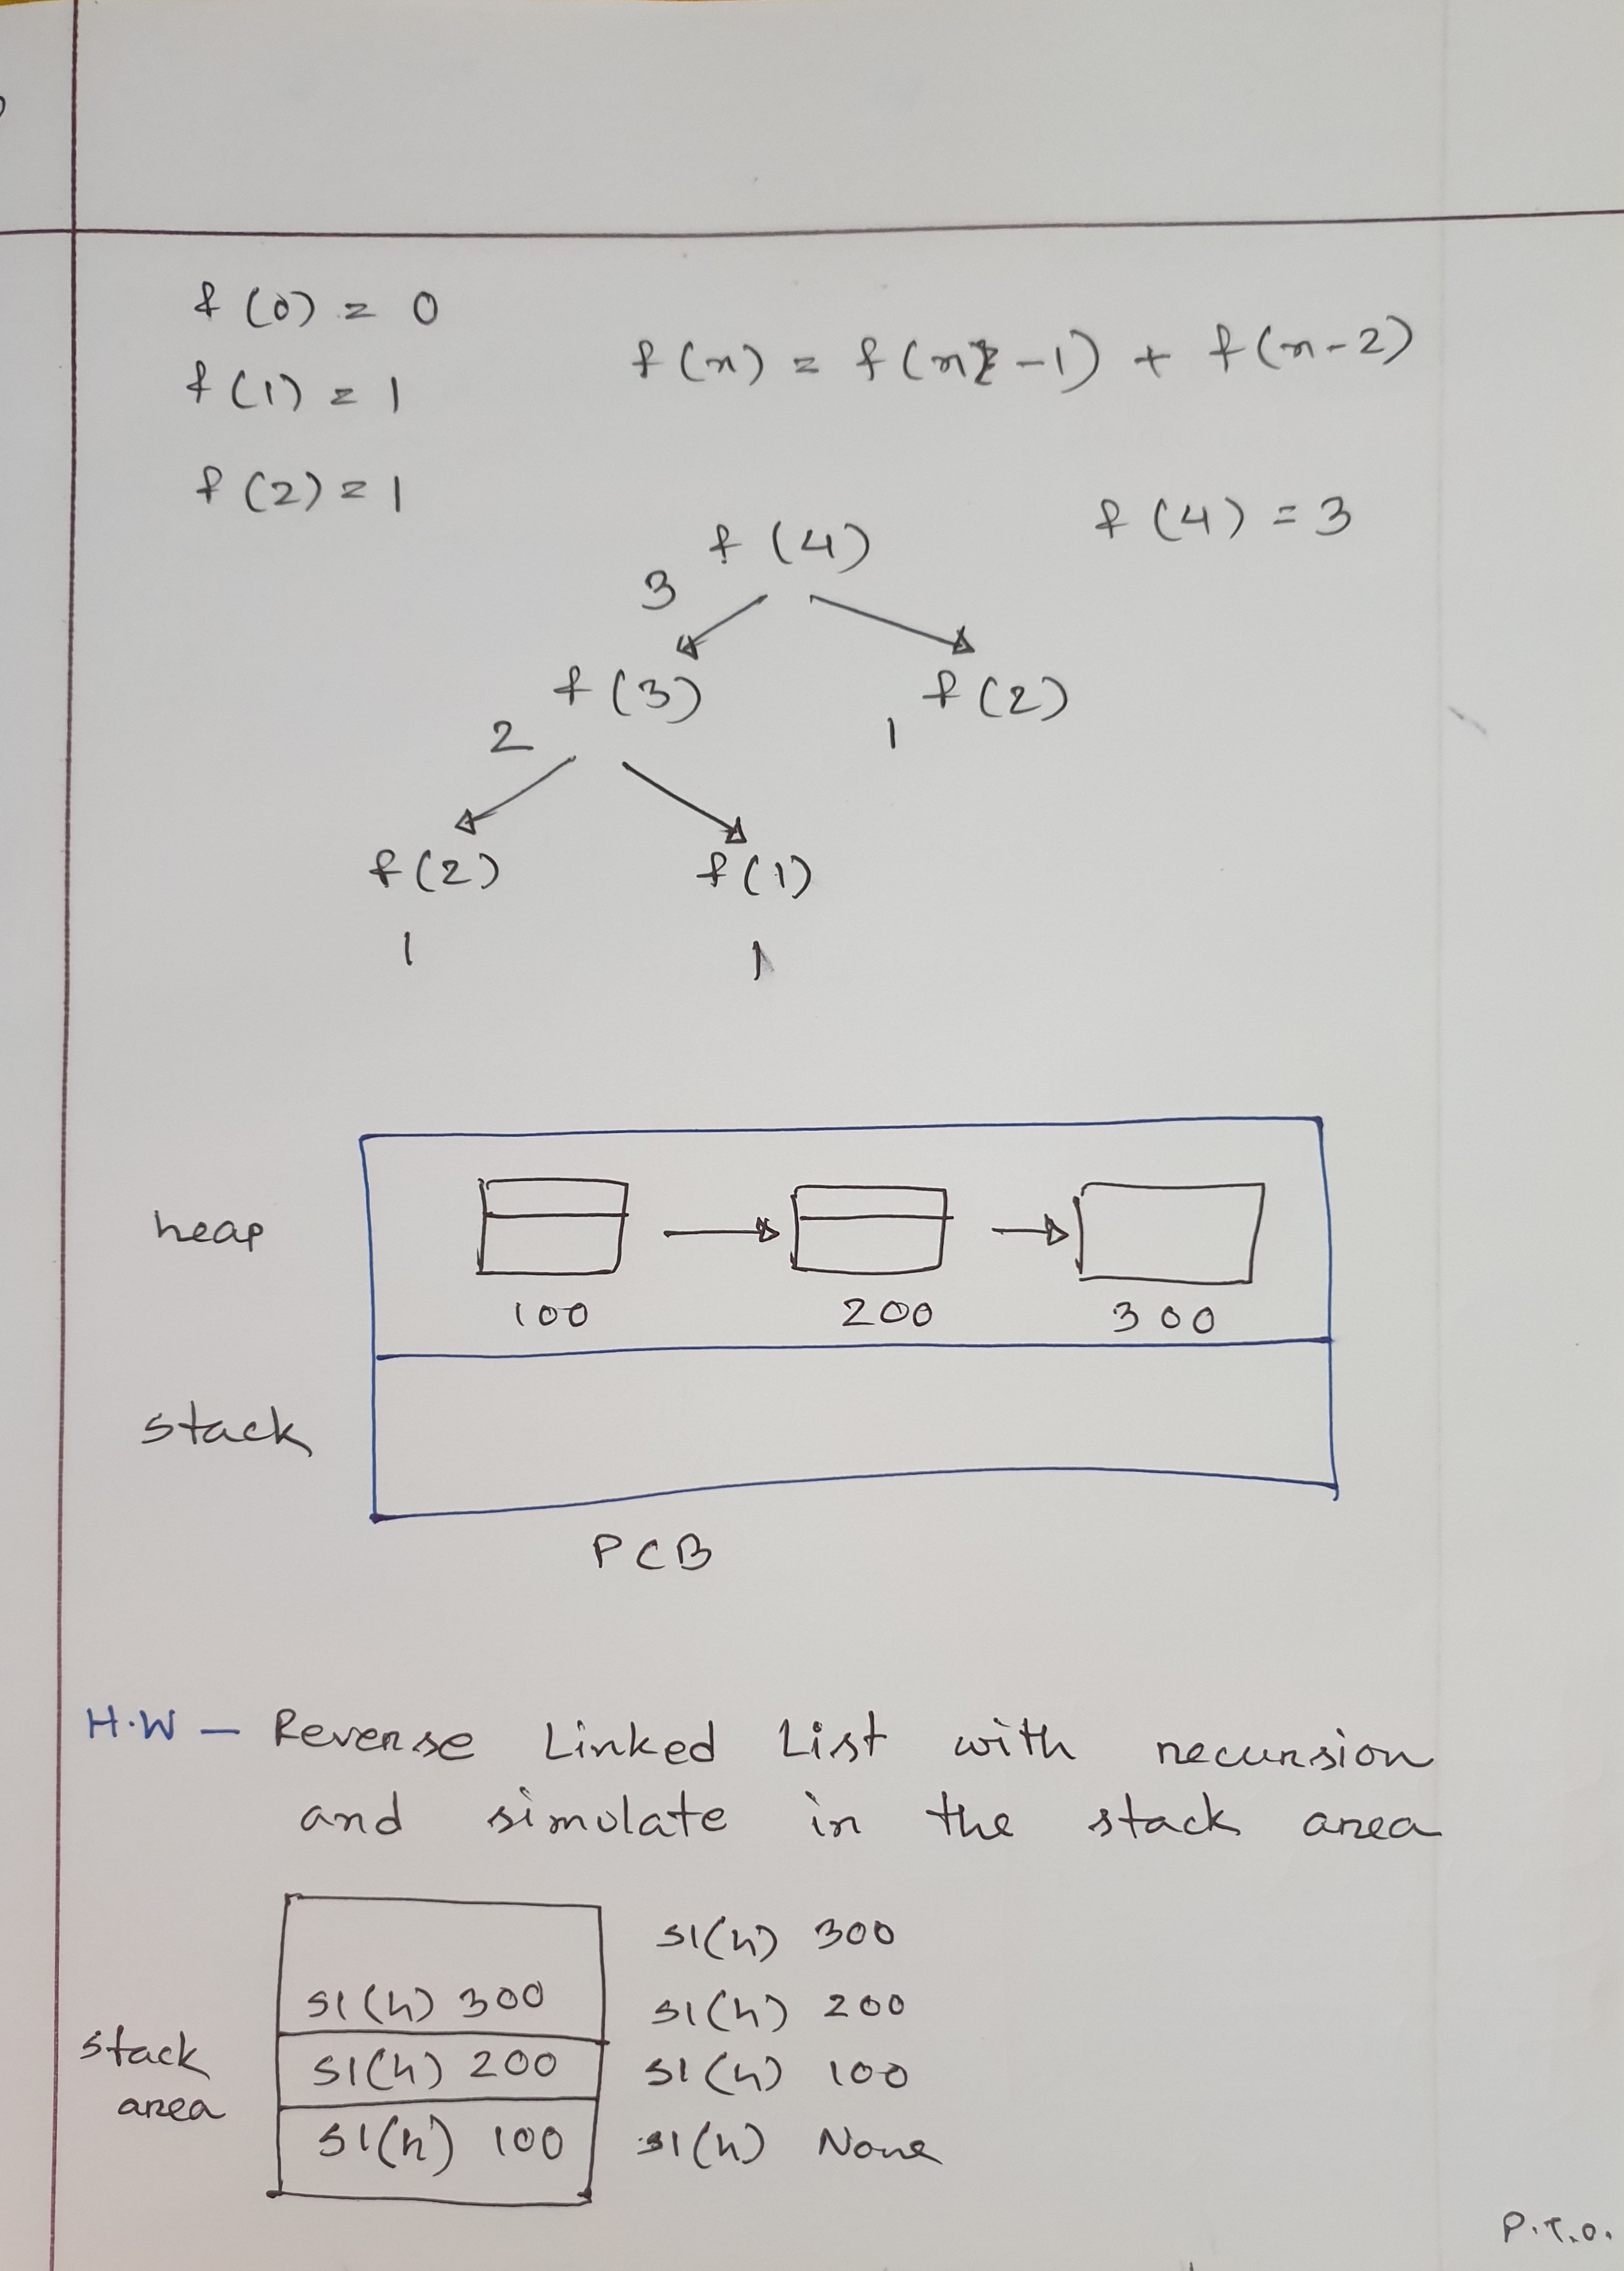 f(0) = 0
f(n) = f(n-1) + f(n-2)
f(1) = 1
f(2) = 1
f(4) = 3
f(4)
3
f(3)
f(2)
2
1
f(2)
f(1)
1
1
heap
100
200
300
stack
PCB
H.W — Reverse Linked List with recursion
and simulate in the stack area
sl(h) 300
sl(h) 300
sl(h) 200
stack
area
sl(h) 200
sl(h) 100
sl(h) 100
sl(h) None
P.T.O.